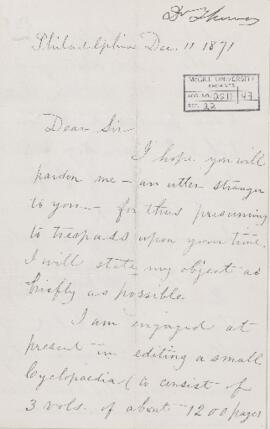 Dr Thomas
Philadelphia Dec. 11 1871
McGILL UNIVERSITY
ARCHIVES
ACC. NO. 2211 / 43
REF. 22
Dear Sir—
I hope you will
pardon me — an utter stranger
to you — for thus presuming
to trespass upon your time.
I will state my object as
briefly as possible.
I am engaged at
present in editing a small
Cyclopaedia (to consist of
3 vols. of about 1200 pages